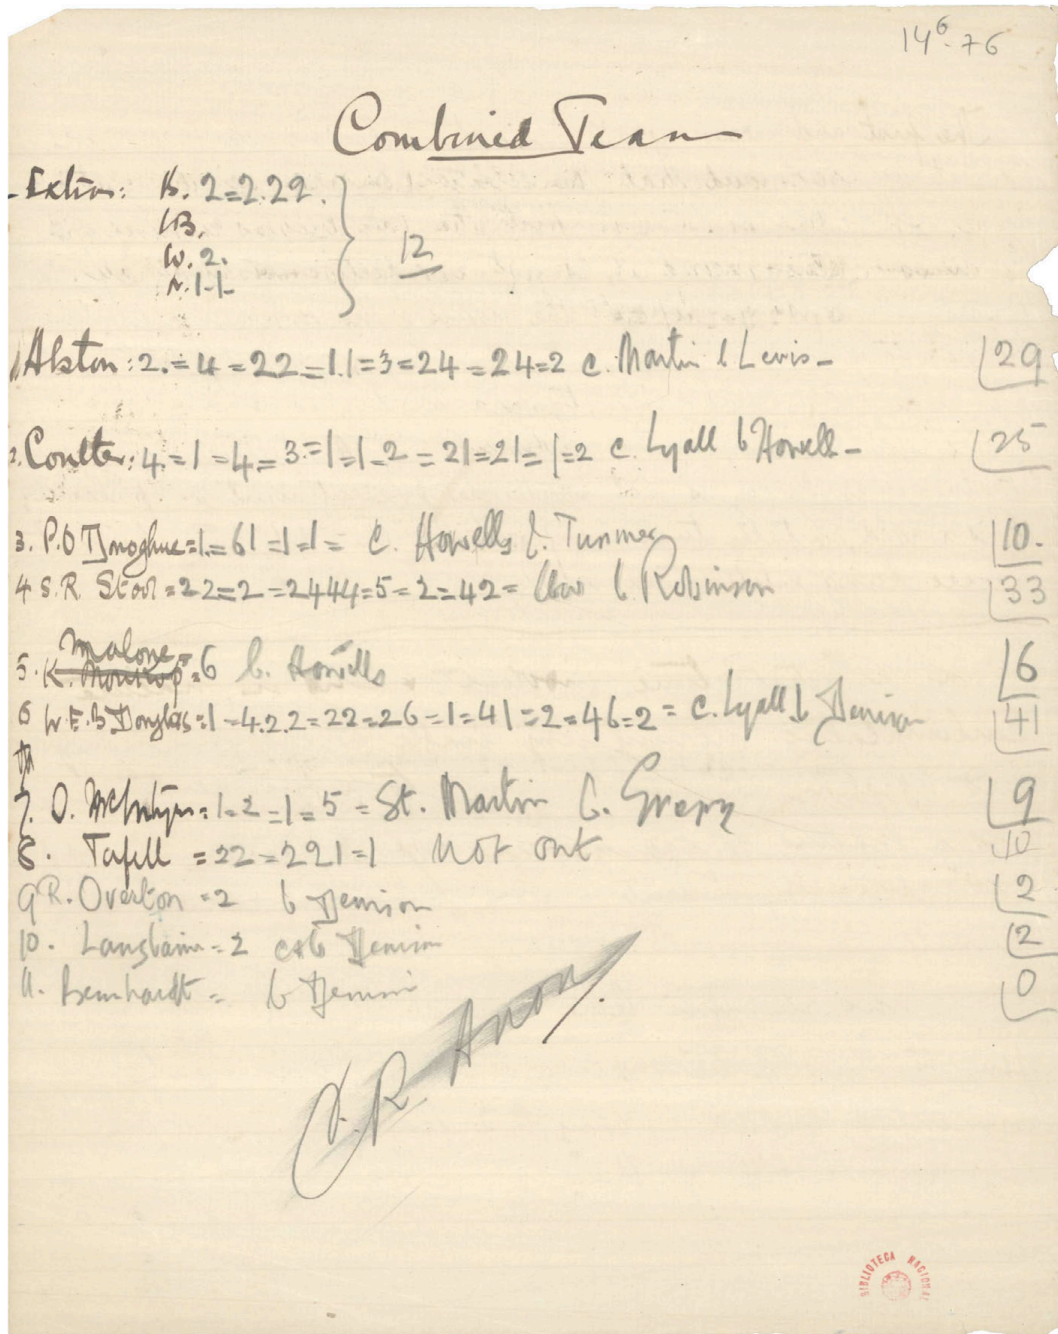 14⁶-76
Combined Team
Extras: B. 2=2.22.
LB.
W. 2.
N. 1-1-
12
1 Alston: 2.=4=22=1.1=3=24=24=2 c. Martin b Lewis- 29
2. Coulter: 4.=1=4=3.=1=1-2=21=21=1=2 c. Lyall b Howell- 25
3. P.O Donoghue=1.=61=1=1= c. Howells b. Tunmer 10.
4 S.R. =22=2=2444=5=2=42= b Robinson 33
Malone
5. K. =6 b. Howells 6
6 W.E.B Douglas=1-4.2.2=22=26=1=41=2=46=2= c. Lyall b Denison 41
7. D. McIntyre=1-2=1=5= St. Martin b. 9
8. =22=221=1 Not out 10
9 R. Overton=2 b Denison 2
10. =2 c&b Denison 2
11. Bernhardt= b Denison 0
BIBLIOTECA NACIONAL